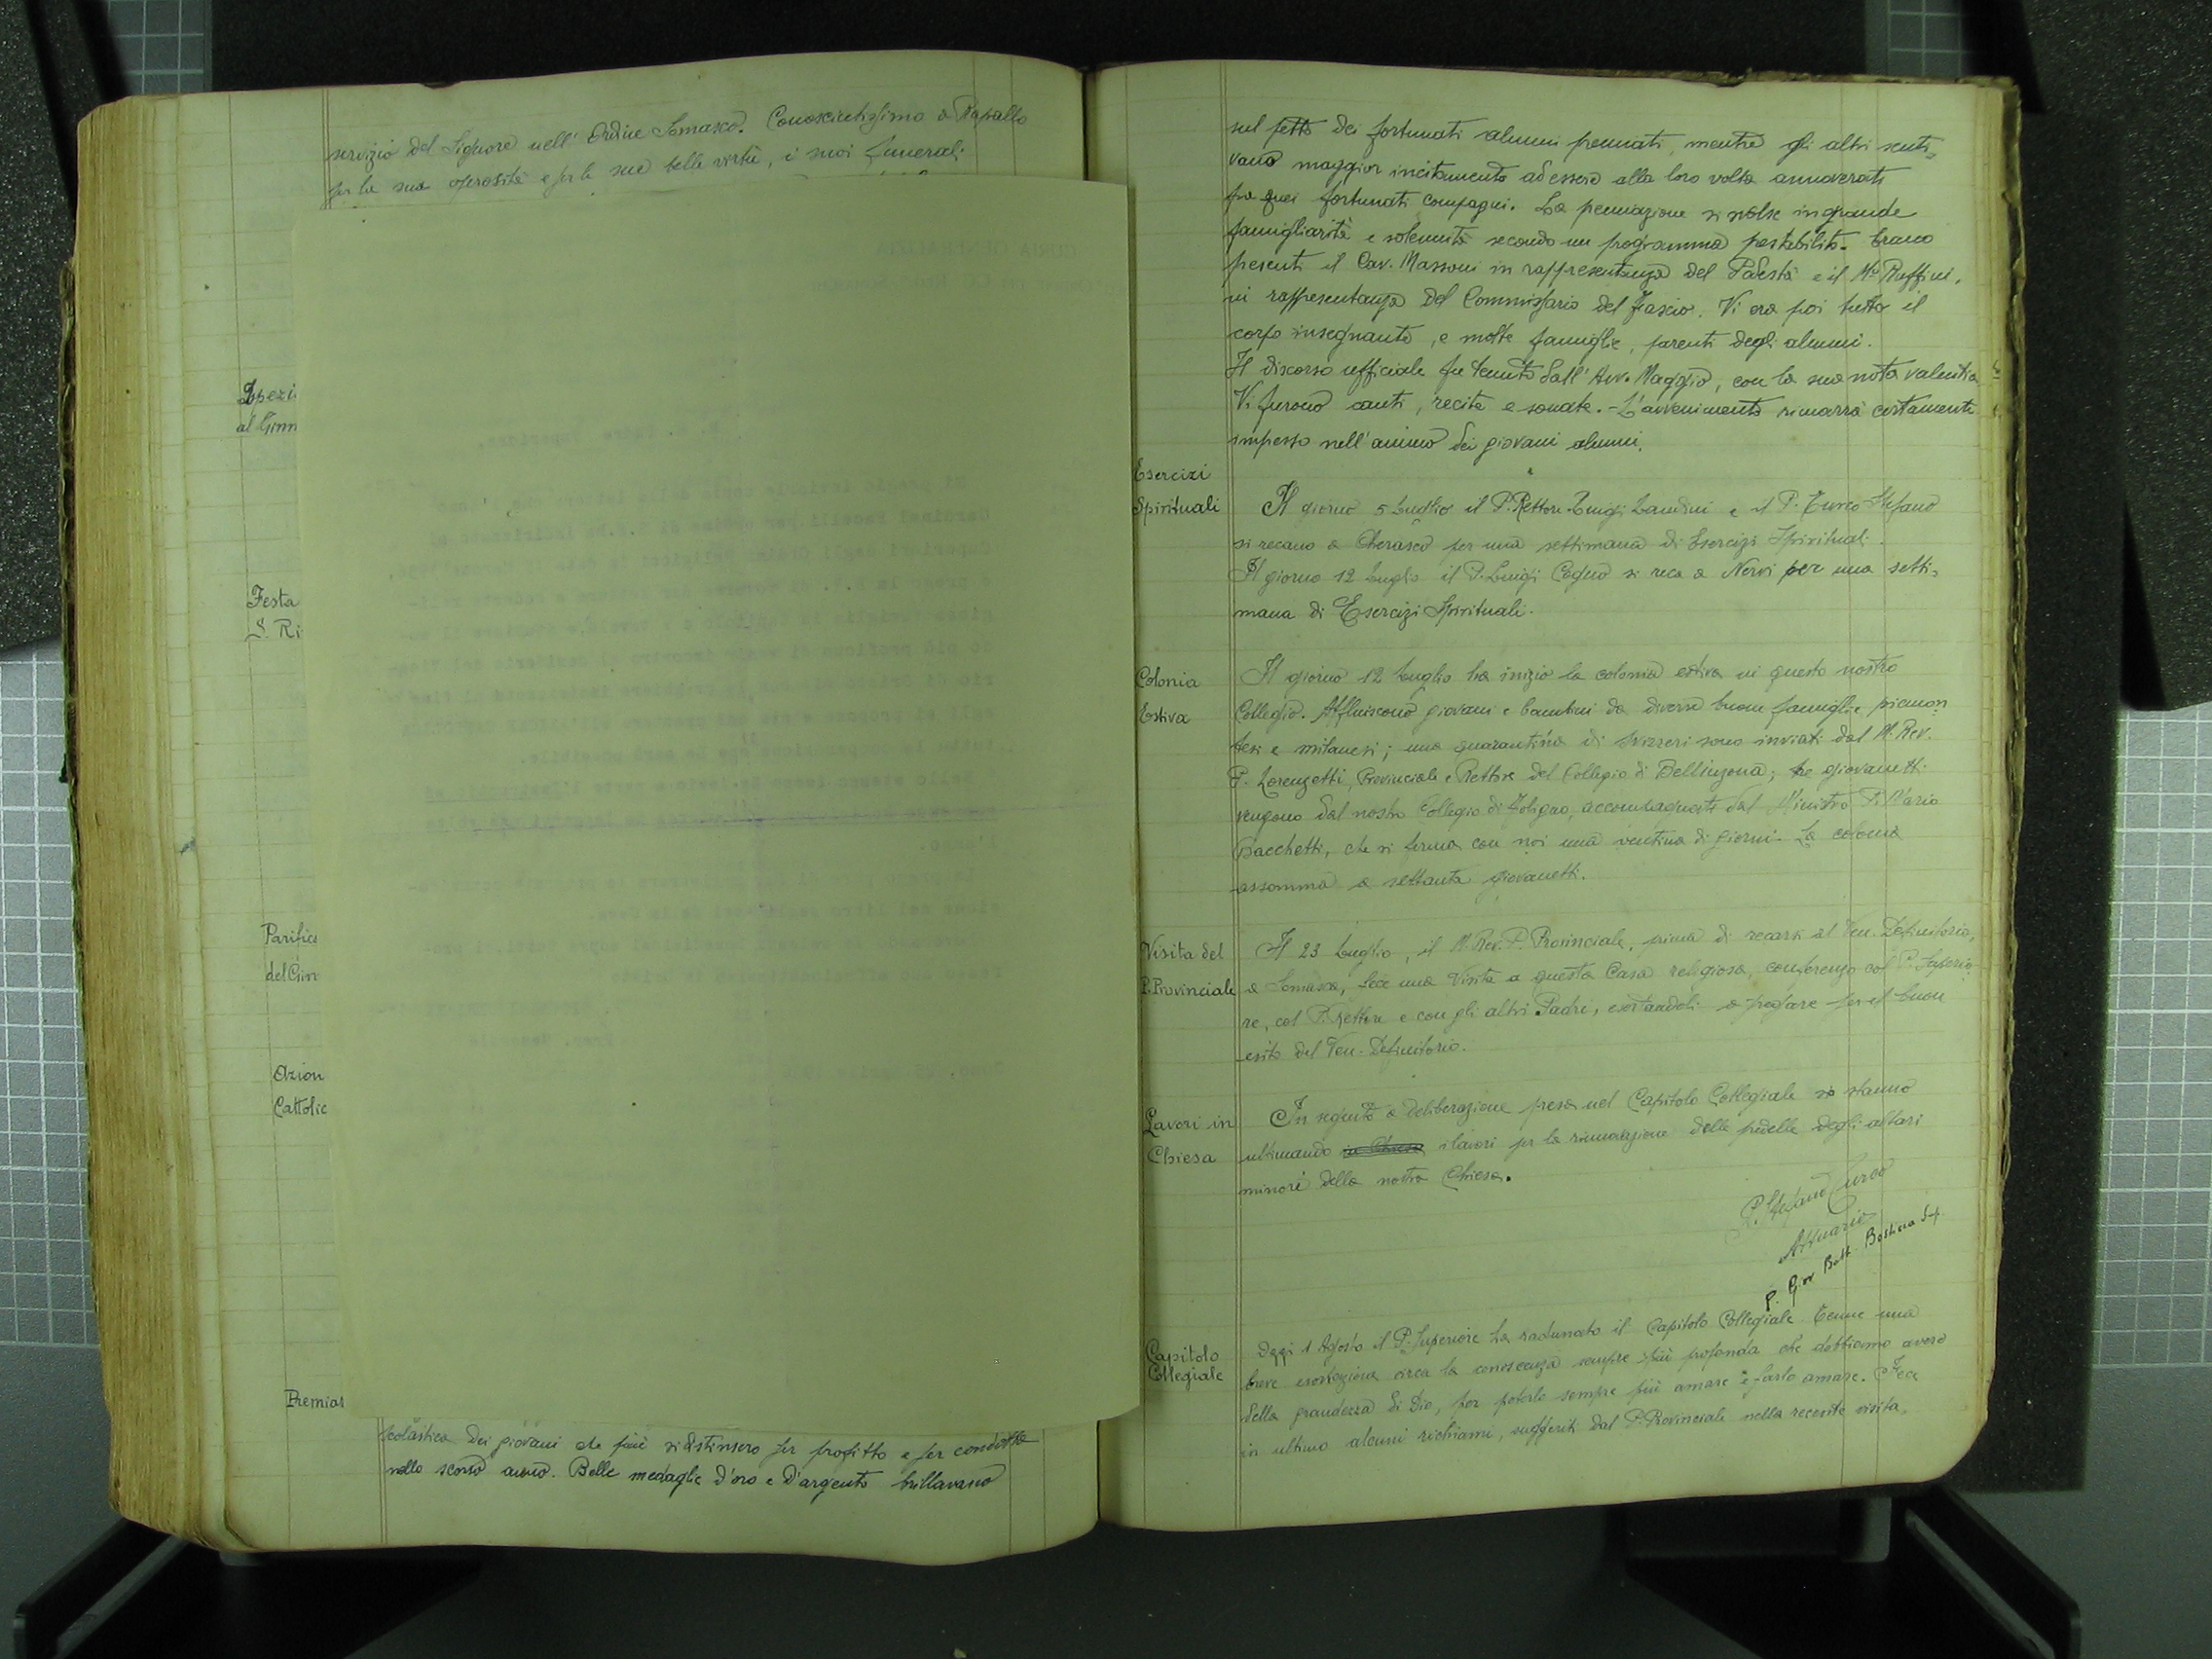 servizio del Signore nell' Ordine Somasco. Conosciutissimo a Rapallo
per la sua operosità e per le sue belle virtù, i suoi funerali
al Ginn
Festa
S. Ri
Parific
del Gin
Azion
Cattolic
Premia
scolastica dei giovani che più si distinsero per profitto e per condotta
nello scorso anno. Belle medaglie d'oro e d'argento brillavano
sul petto dei fortunati alunni premiati, mentre gli altri senti-
vano maggior incitamento ad essere alla loro volta annoverati
fra quei fortunati compagni. La premiazione si svolse in grande
famigliarità e solennità secondo un programma prestabilito. Erano
presenti il Cav. Massoni in rappresentanza del Podestà e il Mo Ruffini,
in rappresentanza del Commissario del Fascio. Vi era poi tutto il
corpo insegnante, e molte famiglie, parenti degli alunni.
Il discorso ufficiale fu tenuto dall' Avv. Maggio, con la sua nota valentia
Vi furono canti, recite e sonate. - L'avvenimento rimarrà certamente
impresso nell'animo dei giovani alunni.
Esercizi
Spirituali
Il giorno 5 Luglio il P. Rettore Luigi Landini e il P. Turco Stefano
si recano a Cherasco per una settimana di Esercizi Spirituali.
Il giorno 12 Luglio il P. Luigi Cogno si reca a Nervi per una setti-
mana di Esercizi Spirituali.
Colonia
Estiva
Il giorno 12 Luglio ha inizio la colonia estiva in questo nostro
Collegio. Affluiscono giovani e bambini da diverse buone famiglie piemon
tesi e milanesi; una quarantina di svizzeri sono inviati dal M. Rev.
P. Lorenzetti, Provinciale e Rettore del Collegio di Bellinzona; tre giovanetti
vengono dal nostro Collegio di Foligno, accompagnati dal Ministro P. Mario
Bacchetti, che si ferma con noi una ventina di giorni. La colonia
assomma a settanta giovanetti.
Visita del
P. Provinciale
Il 23 Luglio, il M. Rev. P. Provinciale, prima di recarsi al Ven. Definitorio,
a Somasca, fece una visita a questa Casa religiosa, conferenza col P. Superio
re, col P. Rettore e con gli altri Padri, esortandoli a pregare per il buon
esito del Ven. Definitorio.
Lavori in
Chiesa
In seguito a deliberazione presa nel Capitolo Collegiale si stanno
ultimando in Chiesa i lavori per la rinnovazione delle predelle degli altari
minori della nostra Chiesa.
P. Stefano Turco
Attuario
P. Giov. Batt. Bostiera Sup.
Capitolo
Collegiale
Oggi 1 Agosto il P. Superiore ha radunato il Capitolo Collegiale. Tenne una
breve esortazione circa la conoscenza sempre più profonda che dobbiamo avere
della grandezza di Dio, per poterlo sempre più amare e farlo amare. Fece
in ultimo alcuni richiami, suggeriti dal P. Provinciale nella recente visita,